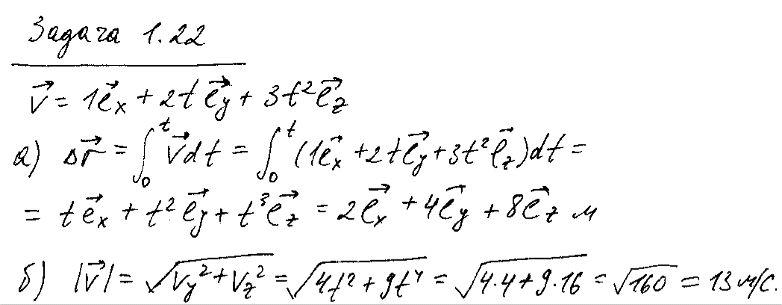 Задача 1.22
v⃗ = 1e⃗x + 2te⃗y + 3t²e⃗z
а) Δr⃗ = ∫₀ᵗ v⃗dt = ∫₀ᵗ (1e⃗x + 2te⃗y + 3t²e⃗z)dt =
= te⃗x + t²e⃗y + t³e⃗z = 2e⃗x + 4e⃗y + 8e⃗z м
б) |v⃗| = √(Vy² + Vz²) = √(4t² + 9t⁴) = √(4·4 + 9·16) = √160 = 13 м/с.